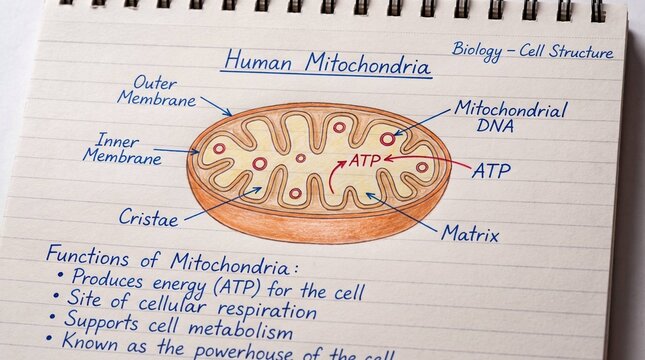 Biology – Cell Structure
Human Mitochondria
Outer
Membrane
Mitochondrial
DNA
Inner
Membrane
ATP
ATP
Cristae
Matrix
Functions of Mitochondria:
• Produces energy (ATP) for the cell
• Site of cellular respiration
• Supports cell metabolism
• Known as the powerhouse of the cell